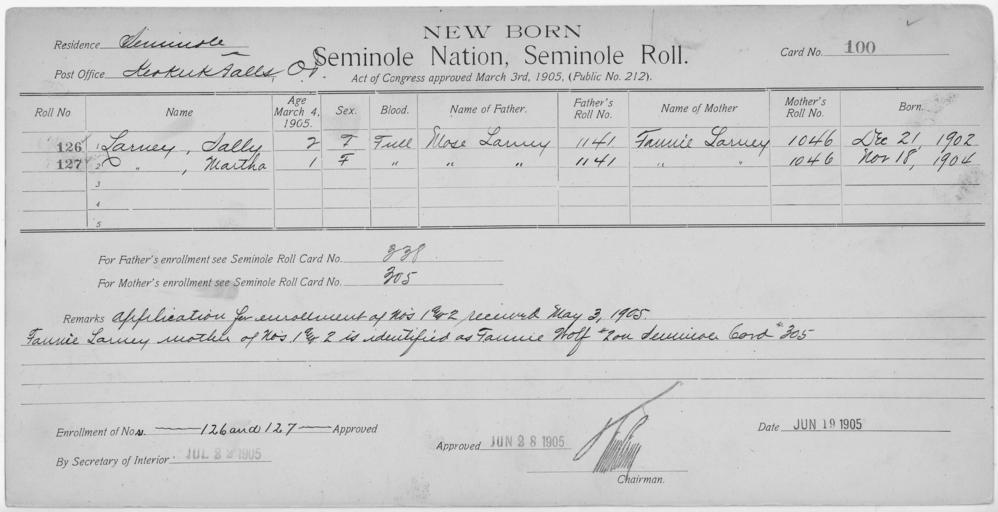 NEW BORN
Residence Seminole
Seminole Nation, Seminole Roll.
Card No. 100
Post Office Keokuk Falls, O.T.
Act of Congress approved March 3rd, 1905, (Public No. 212).
Roll No Name Age March 4, 1905. Sex. Blood. Name of Father. Father's Roll No. Name of Mother Mother's Roll No. Born.
126 1 Larney, Sally 2 F Full Mose Larney 1141 Fannie Larney 1046 Dec 21, 1902
127 2 " , Martha 1 F " " " 1141 " " 1046 Nov 18, 1904
3
4
5
For Father's enrollment see Seminole Roll Card No. 338
For Mother's enrollment see Seminole Roll Card No. 305
Remarks Application for enrollment of Nos 1 & 2 received May 3, 1905
Fannie Larney mother of Nos. 1 & 2 is identified as Fannie Wolf #2 on Seminole Card #305
Enrollment of Nos. 126 and 127 Approved
By Secretary of Interior JUL 22 1905
Approved JUN 28 1905
Chairman.
Date JUN 19 1905